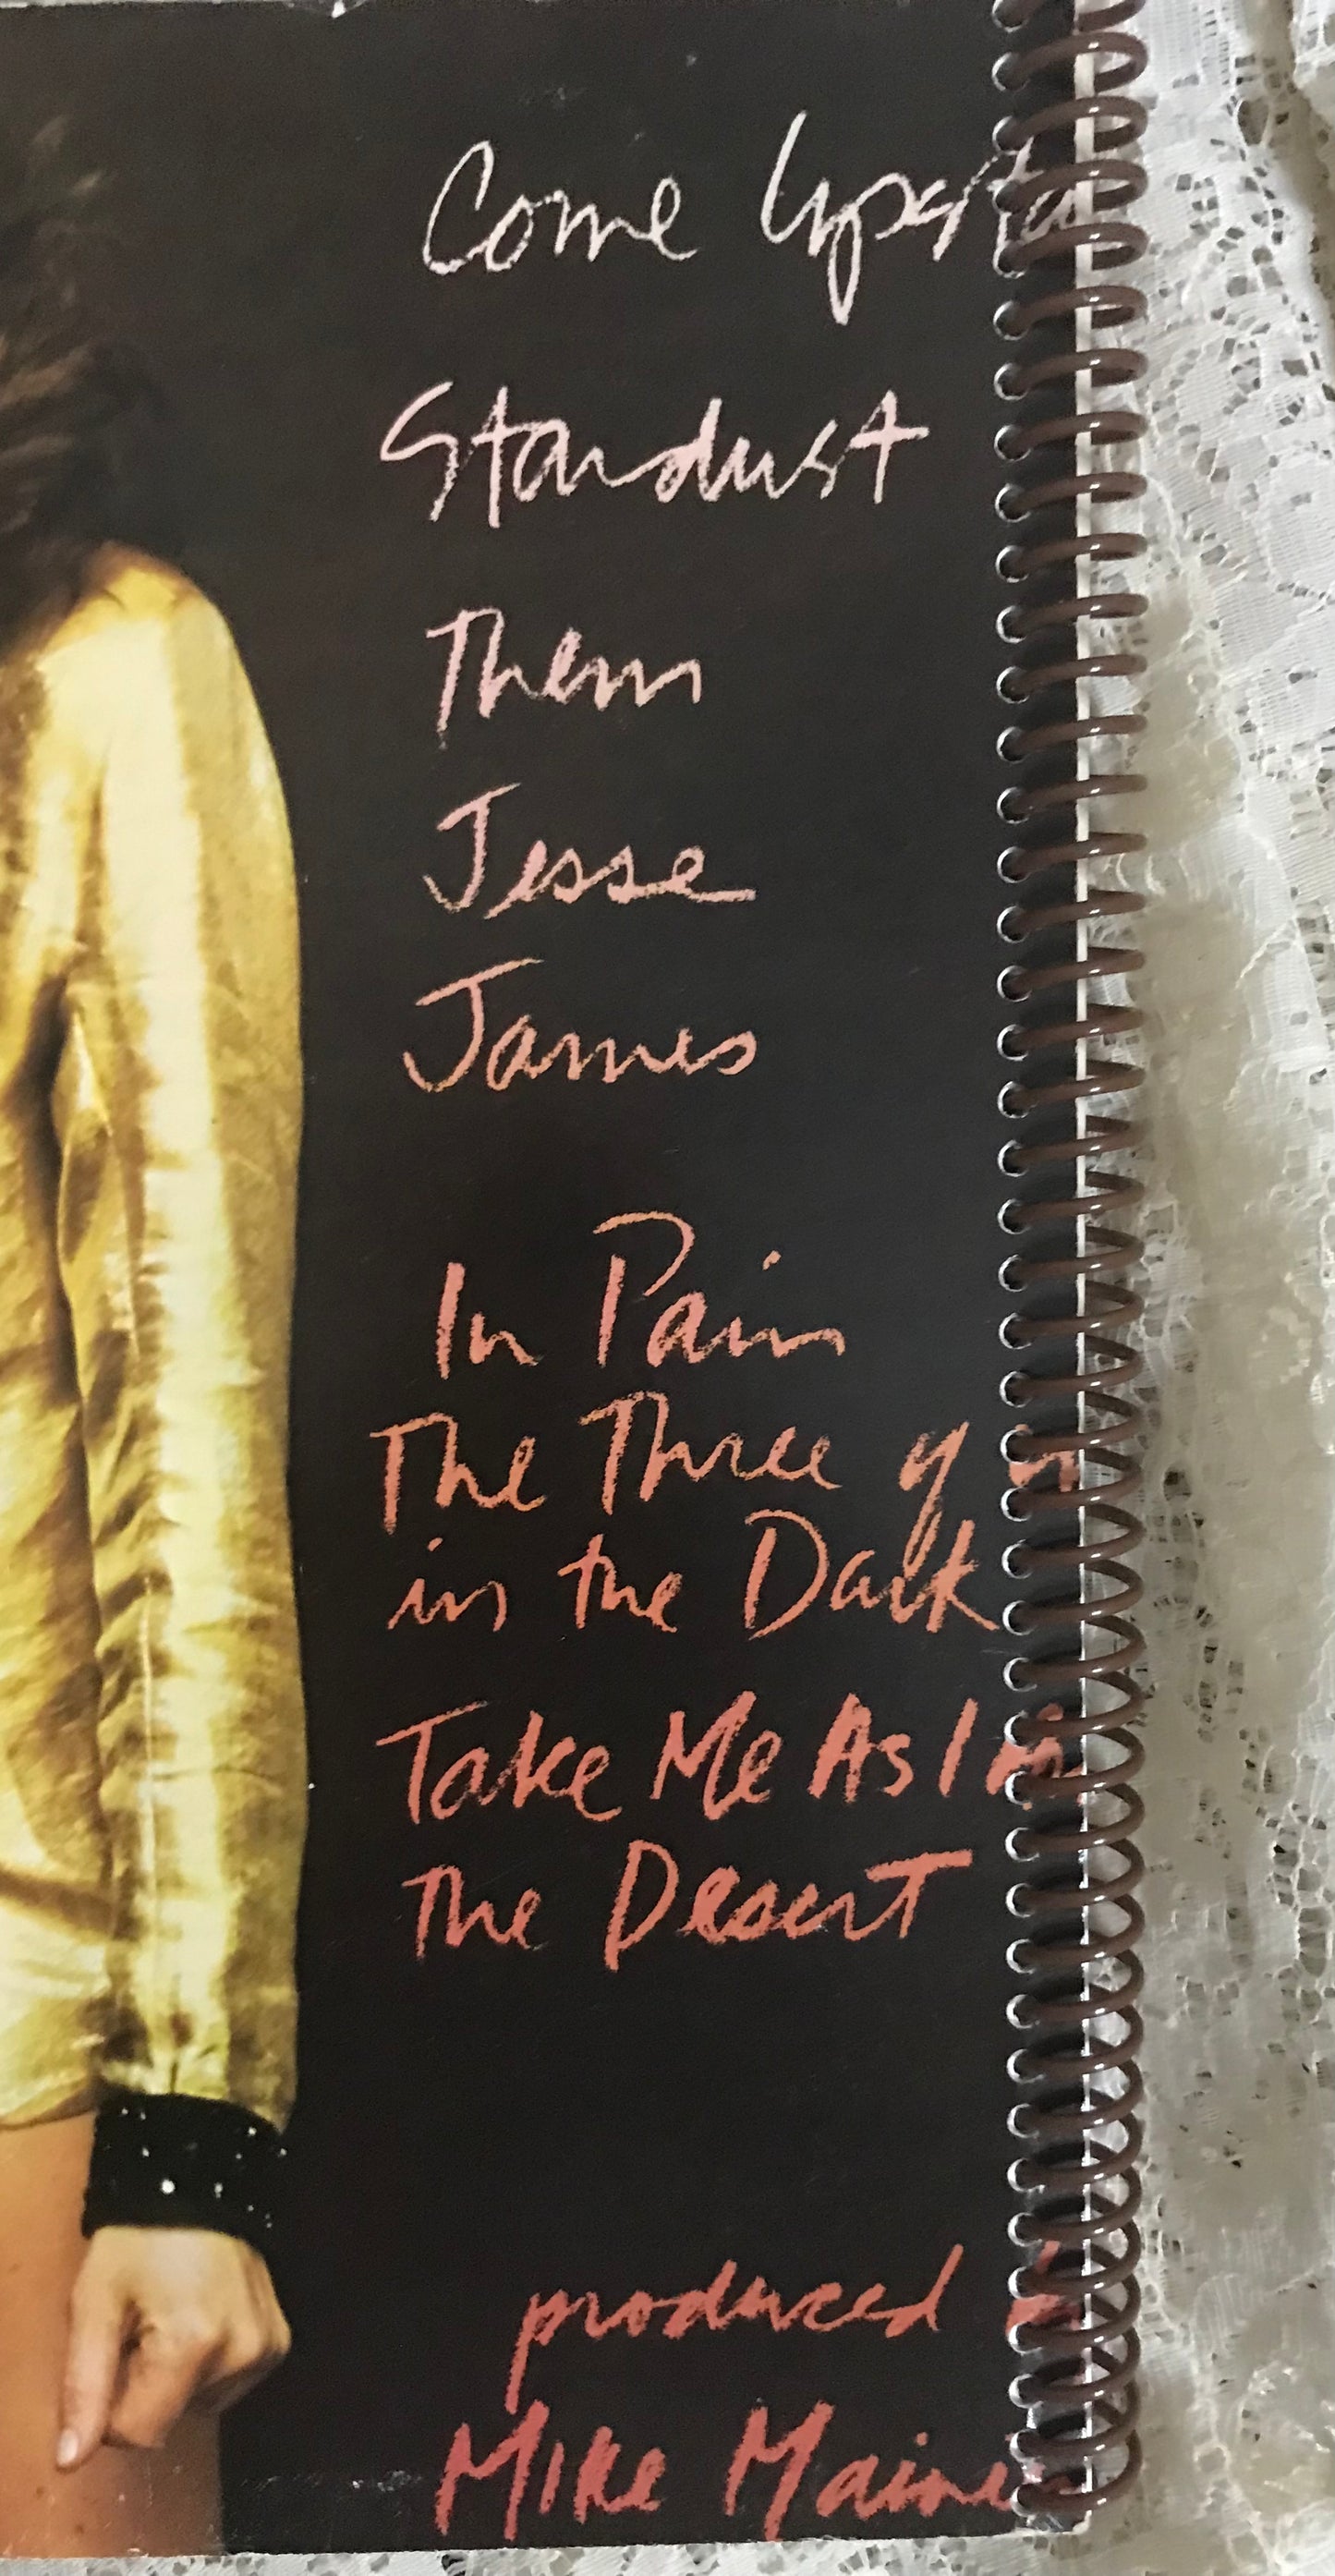 Come Upsta
Stardust
Them
Jesse
James
In Pain
The Three of
in the Dark
Take Me As I
The Desert
produced
Mike Maine